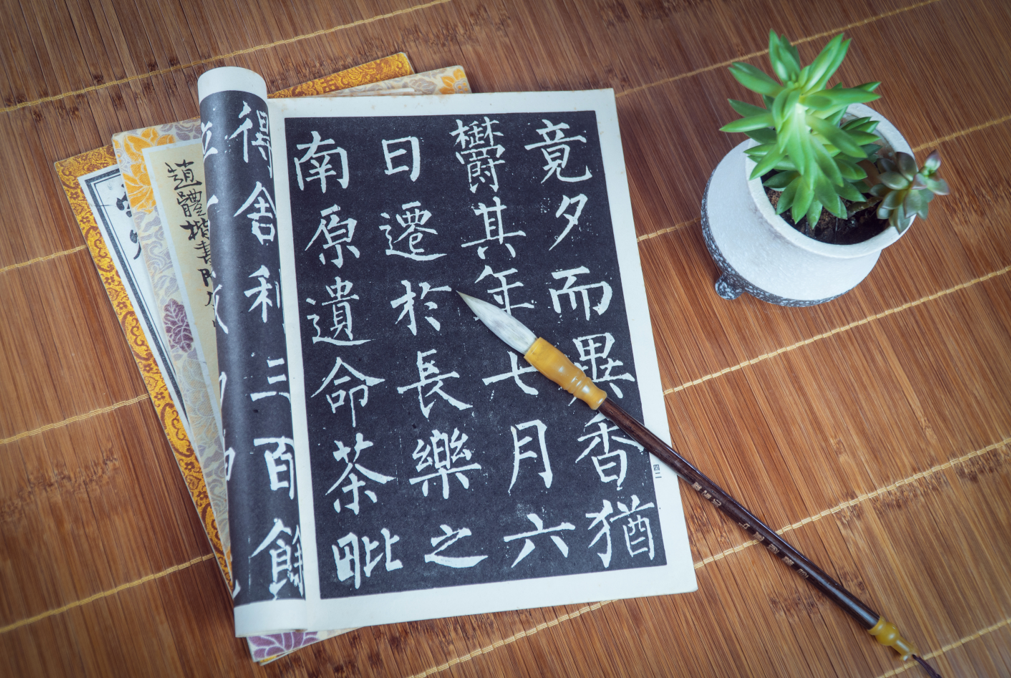 竟夕而異香猶
鬱其年七月六
日遷於長樂之
南原遺命茶毗
得舍利三百餘
體楷書